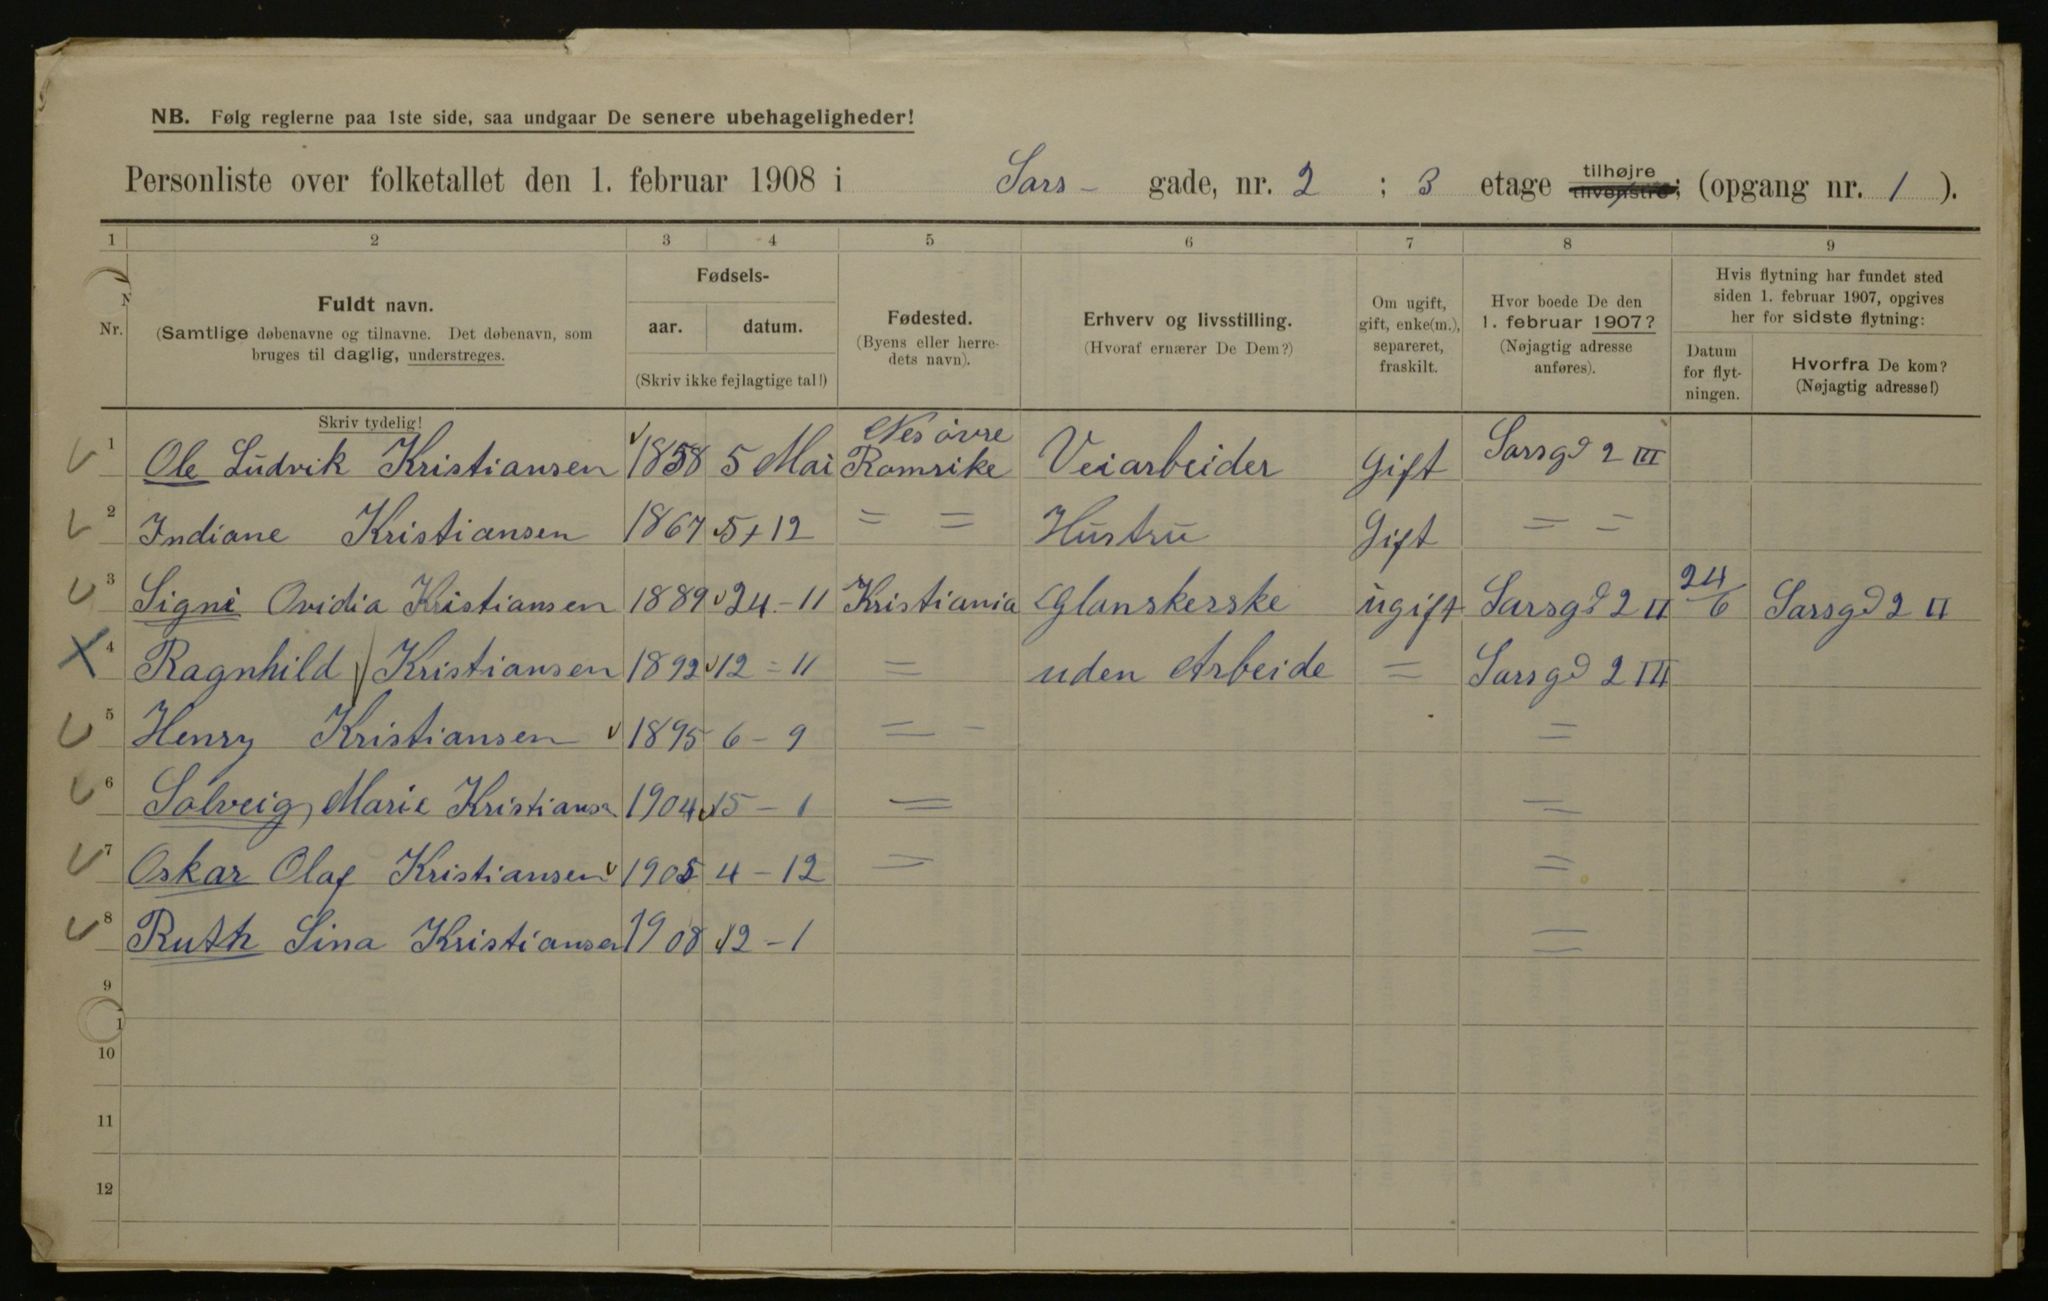 NB. Følg reglerne paa 1ste side, saa undgaar De senere ubehageligheder!
Personliste over folketallet den 1. februar 1908 i Sars- gade, nr. 2 ; 3 etage tilhøjre tilvenstre; (opgang nr. 1 ).
1 2 3 4 5 6 7 8 9
Nr.
Fuldt navn.
(Samtlige døbenavne og tilnavne. Det døbenavn, som
bruges til daglig, understreges.
Skriv tydelig!
Fødsels-
aar. datum.
(Skriv ikke fejlagtige tal!)
Fødested.
(Byens eller herre-
dets navn).
Erhverv og livsstilling.
(Hvoraf ernærer De Dem?)
Om ugift,
gift, enke(m.),
separeret,
fraskilt.
Hvor boede De den
1. februar 1907?
(Nøjagtig adresse
anføres).
Hvis flytning har fundet sted
siden 1. februar 1907, opgives
her for sidste flytning:
Datum
for flyt-
ningen.
Hvorfra De kom?
(Nøjagtig adresse!)
Nes övre
1 Ole Ludvik Kristiansen 1858 5 Mai Romrike Veiarbeider Gift Sarsgd 2 III
2 Indiane Kristiansen 1867 5+12 = = Hustru Gift = =
3 Signe Ovidia Kristiansen 1889 24-11 Kristiania Glanskerske ugift Sarsgd 2 II 24/6 Sarsgd 2 II
4 Ragnhild Kristiansen 1892 12=11 = uden Arbeide = Sarsgd 2 III
5 Henry Kristiansen 1895 6-9 = - =
6 Solveig, Marie Kristiansen 1904 15-1 = =
7 Oskar Olaf Kristiansen 1905 4-12 = =
8 Ruth Sina Kristiansen 1908 12-1 =
9
10
11
12